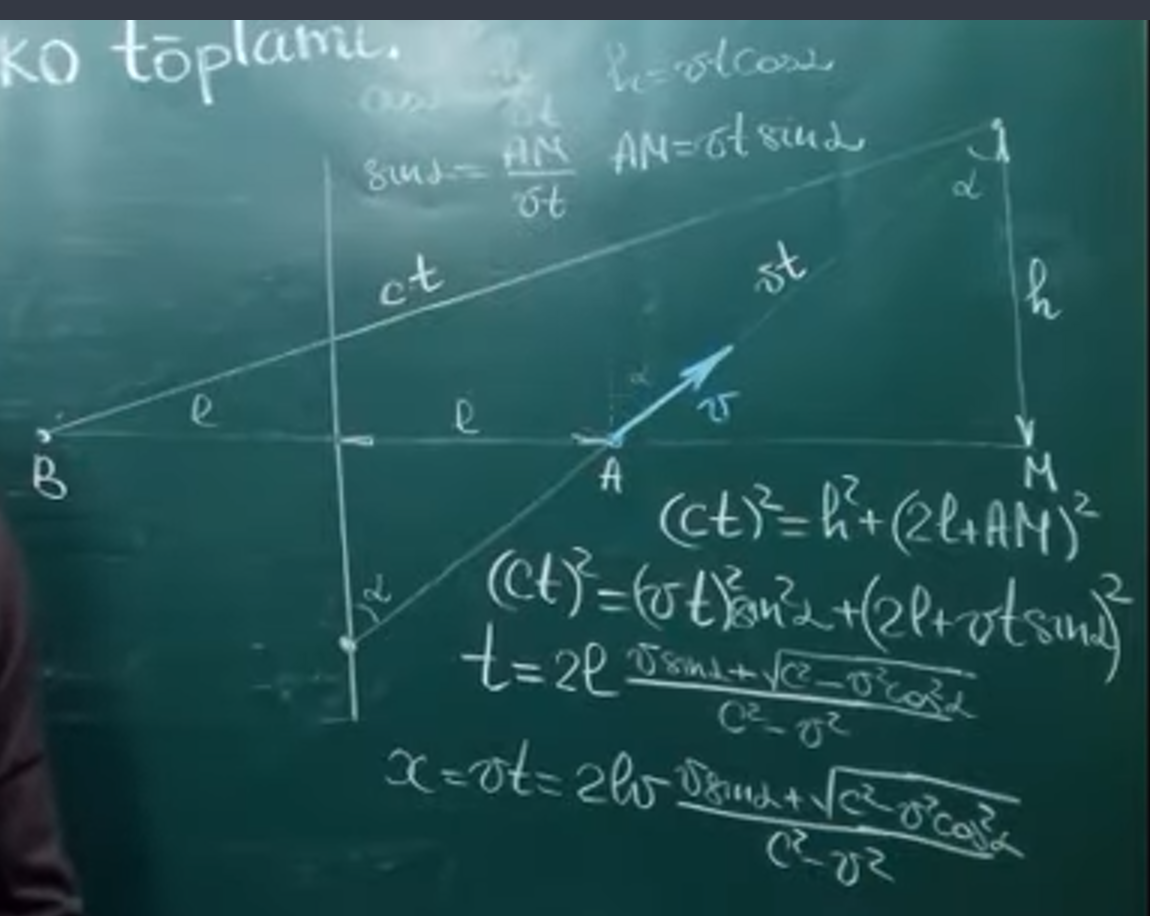 ko tōplami.
h=vtcosα
vt
sinα=AM/vt AM=vt sinα
α
ct
vt
h
α
l
l
v
B
A
M
(ct)²=h²+(2l+AM)²
α
(ct)²=(vt)²sin²α+(2l+vtsinα)²
t=2l (vsinα+√(c²-v²cos²α))/(c²-v²)
x=vt=2lv (vsinα+√(c²-v²cos²α))/(c²-v²)